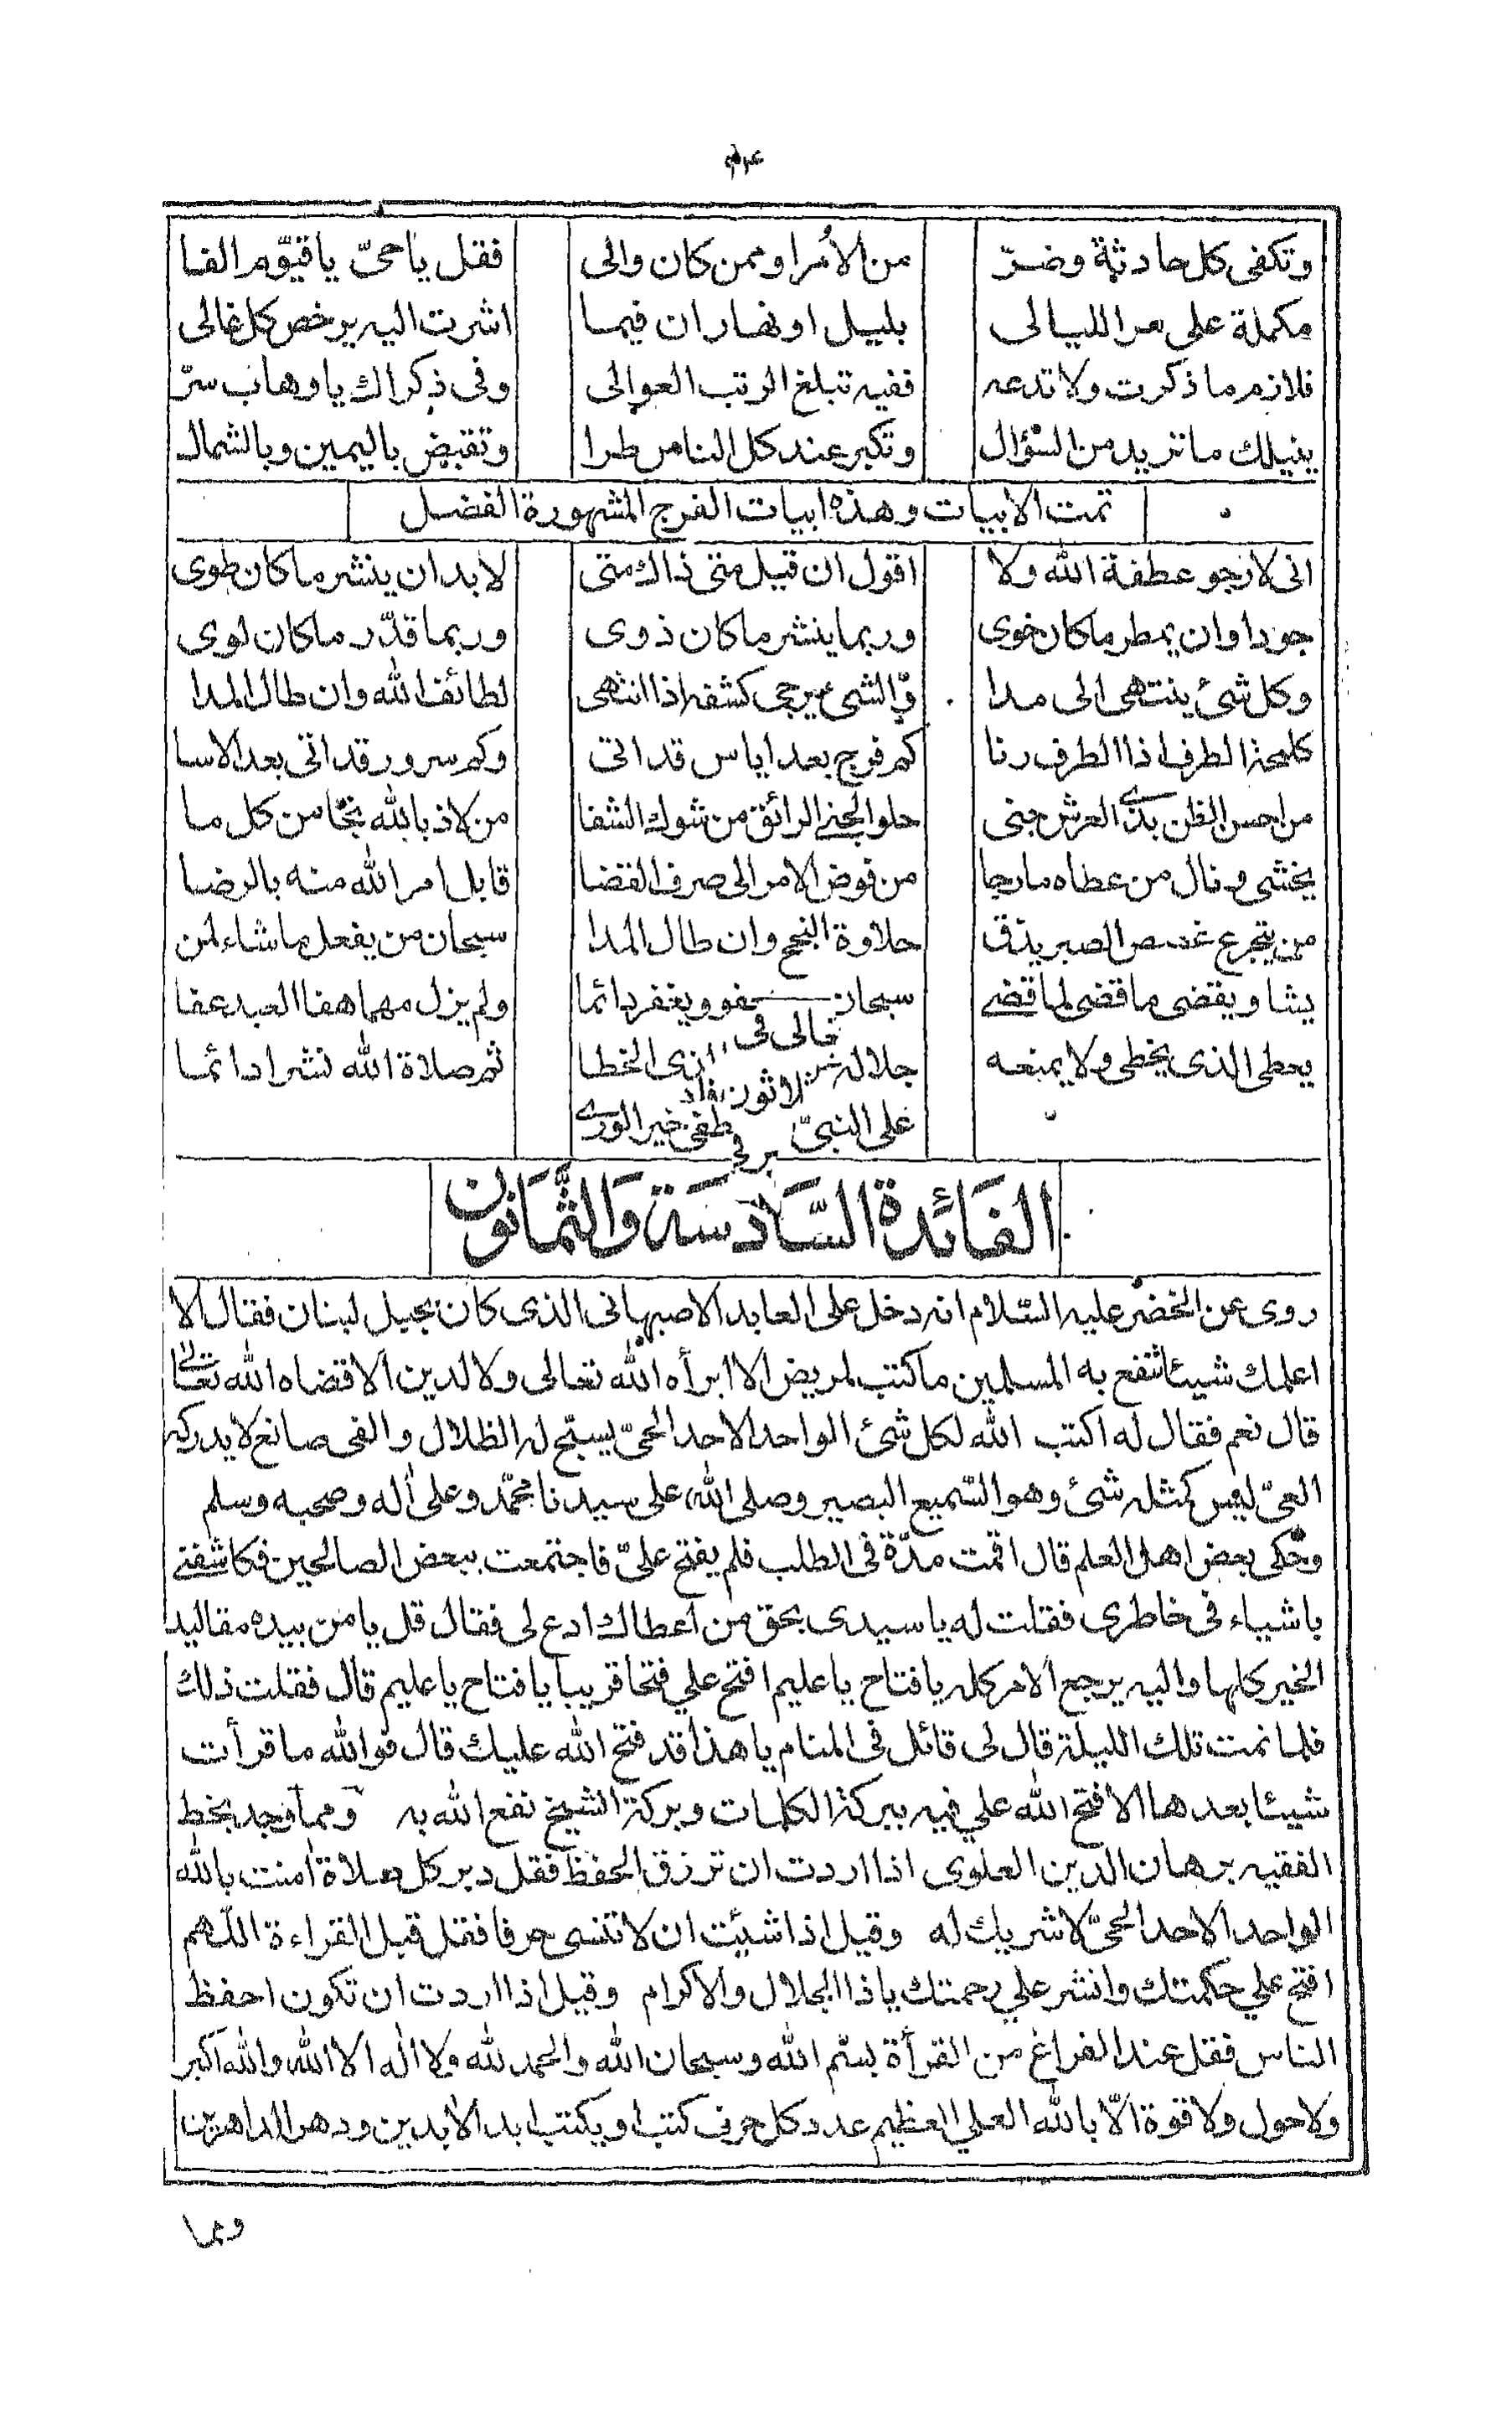 وتكفى كل حادثة وضرّ من الأمرا وممن كان والى فقل ياحىّ ياقيّوم الفا
مكملة على مر الليالى بليل اونهار ان فيما اشرت اليه يرخص كل غالى
فلازم ما ذكرت ولا تدعه ففيه تبلغ الرتب العوالى وفى ذكراك ياوهاب سرّ
ينيلك ماتريد من السؤال وتكبر عند كل الناس طرا وتقبض باليمين وبالشمال
تمت الابيات وهذه ابيات الفرج المشهورة الفضل
انى لارجو عطفة الله ولا اقول ان قيل متى ذاك متى لابد ان ينشر ما كان طوى
جودا وان يمطر ماكان خوى وربما ينشر ماكان ذوى وربما قدّر ماكان لوى
وكل شئ ينتهى الى مدا والشىء يرجى كشفه اذا انتهى لطائف الله وان طال المدا
كلمحة الطرف اذا الطرف رنا كم فرج بعد اياس قد اتى وكم سرور قد اتى بعد الاسا
من احسن الظن بذى العرش جنى حلو الجنى الرائق من شوك الشفا من لاذ بالله نجا من كل ما
يخشى ونال من عطاه مارجا من فوض الامر الى صرف القضا قابل امر الله منه بالرضا
من يتجرع غصص الصبر يذق حلاوة النجح وان طال المدا سبحان من يفعل ماشاء لمن
يشا ويقضى ماقضى لما قضى سبحان يعفو ويغفر دائما ولم يزل مهما هفا العبد عفا
يعطى الذى يخطى ولا يمنعه جلاله الخطا ثم صلاة الله نشرا دائما
على النبىّ خير الورى
الفَائدة السَّادسَة وَالثَّمَانون
روى عن الخضر عليه السّلام انه دخل على العابد الاصبهانى الذى كان بجبل لبنان فقال الا
اعلمك شيئا تنفع به المسلمين ماكتب لمريض الا ابرأه الله تعالى ولا لدين الاقضاه الله تعالى
قال نعم فقال له اكتب الله لكل شئ الواحد الاحد الحىّ يسبّح له الظلال والفى صانع لايدركه
العىّ ليس كمثله شئ وهو السّميع البصير وصلى الله على سيدنا محمّد وعلى آله وصحبه وسلم
وحكى بعض اهل العلم قال اقمت مدّة فى الطلب فلم يفتح علىّ فاجتمعت ببعض الصالحين فكاشفنى
باشياء فى خاطرى فقلت له ياسيدى بحق من اعطاك ادع لى فقال قل يامن بيده مقاليد
الخير كلها واليه يرجع الامر كله يافتاح ياعليم افتح علي فتحا قريبا يافتاح ياعليم قال فقلت ذلك
فلما نمت تلك الليلة قال لى قائل فى المنام ياهذا قد فتح الله عليك قال فوالله ماقرأت
شيئا بعدها الا فتح الله علي فيه ببركة الكلمات وبركة الشيخ نفع الله به ومما وجد بخط
الفقيه برهان الدين العلوى اذا اردت ان ترزق الحفظ فقل دبر كل صلاة آمنت بالله
الواحد الاحد الحىّ لاشريك له وقيل اذا شئت ان لا تنسى حرفا فقل قبل القراءة اللّهم
افتح علي حكمتك وانشر علي رحمتك ياذا الجلال والاكرام وقيل اذا اردت ان تكون احفظ
الناس فقل عند الفراغ من القرأة بسم الله وسبحان الله والحمد لله ولا اله الا الله والله اكبر
ولاحول ولاقوة الّا بالله العلي العظيم عدد كل حرف كتب او يكتب ابد الابدين ودهر الداهرين
ومما